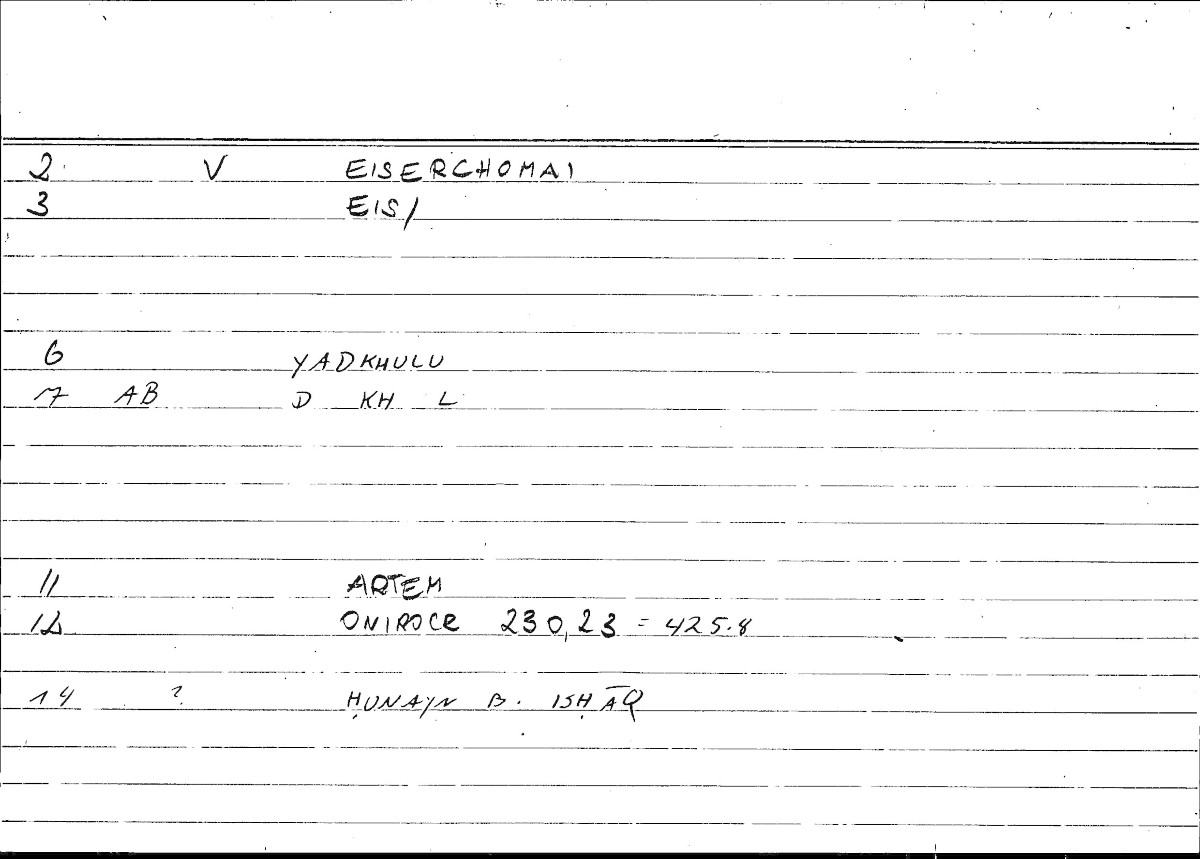 2 V EISERCHOMAI
3 EIS/
6 YADKHULU
7 AB D KH L
11 ARTEM
12 ONIROCR 230,23 = 425.8
14 ? ḤUNAYN B. ISḤĀQ